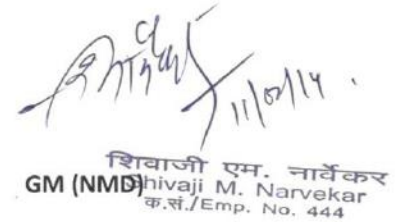 11/02/14
शिवाजी एम. नार्वेकर
GM (NMD) Shivaji M. Narvekar
क.सं./Emp. No. 444